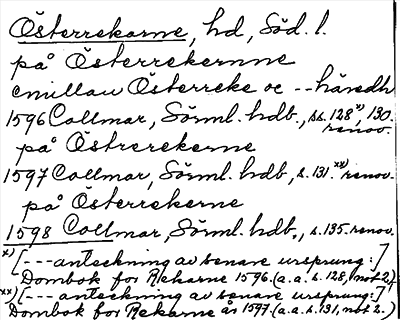 Österrekarne, hd, Söd. l.
på Österrekernne
emillan Österreke oc -- häredh
1596 Collmar, Sörml. hdb., ss. 128x), 130.
renov.
på Östrerekerne
1597 Collmar, Sörml. hdb., s. 131.xx) renov.
på Österrekerne
1598 Collmar, Sörml. hdb., s. 135. renov.
x) [--- anteckning av senare ursprung:]
Dombok for Rekarne 1596. (a.a. s. 128, not 2.)
xx) [--- anteckning av senare ursprung:]
Dombok for Rekarne år 1597. (a.a. s. 131, not 2.)